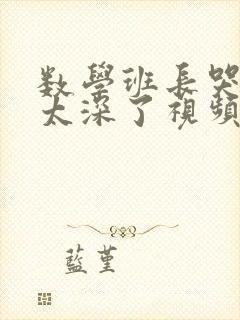 数學班長哭
太深了視頻
藍堇